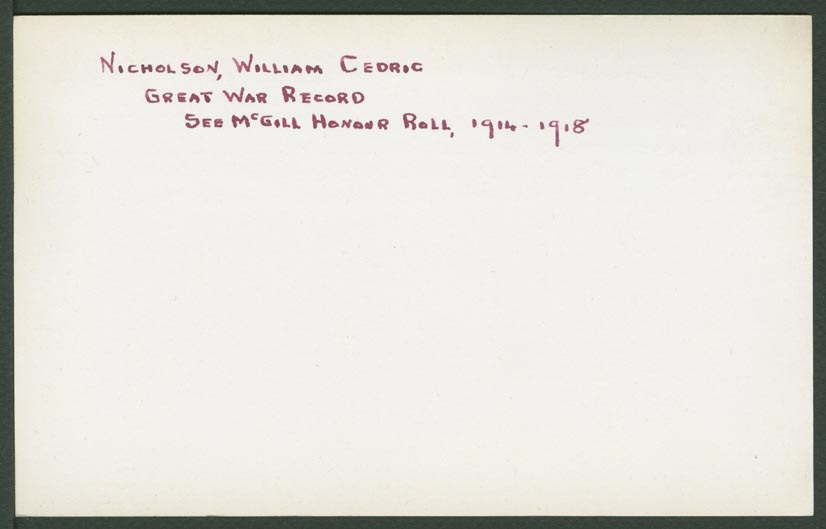 NICHOLSON, WILLIAM CEDRIC
GREAT WAR RECORD
SEE McGILL HONOUR ROLL, 1914-1918